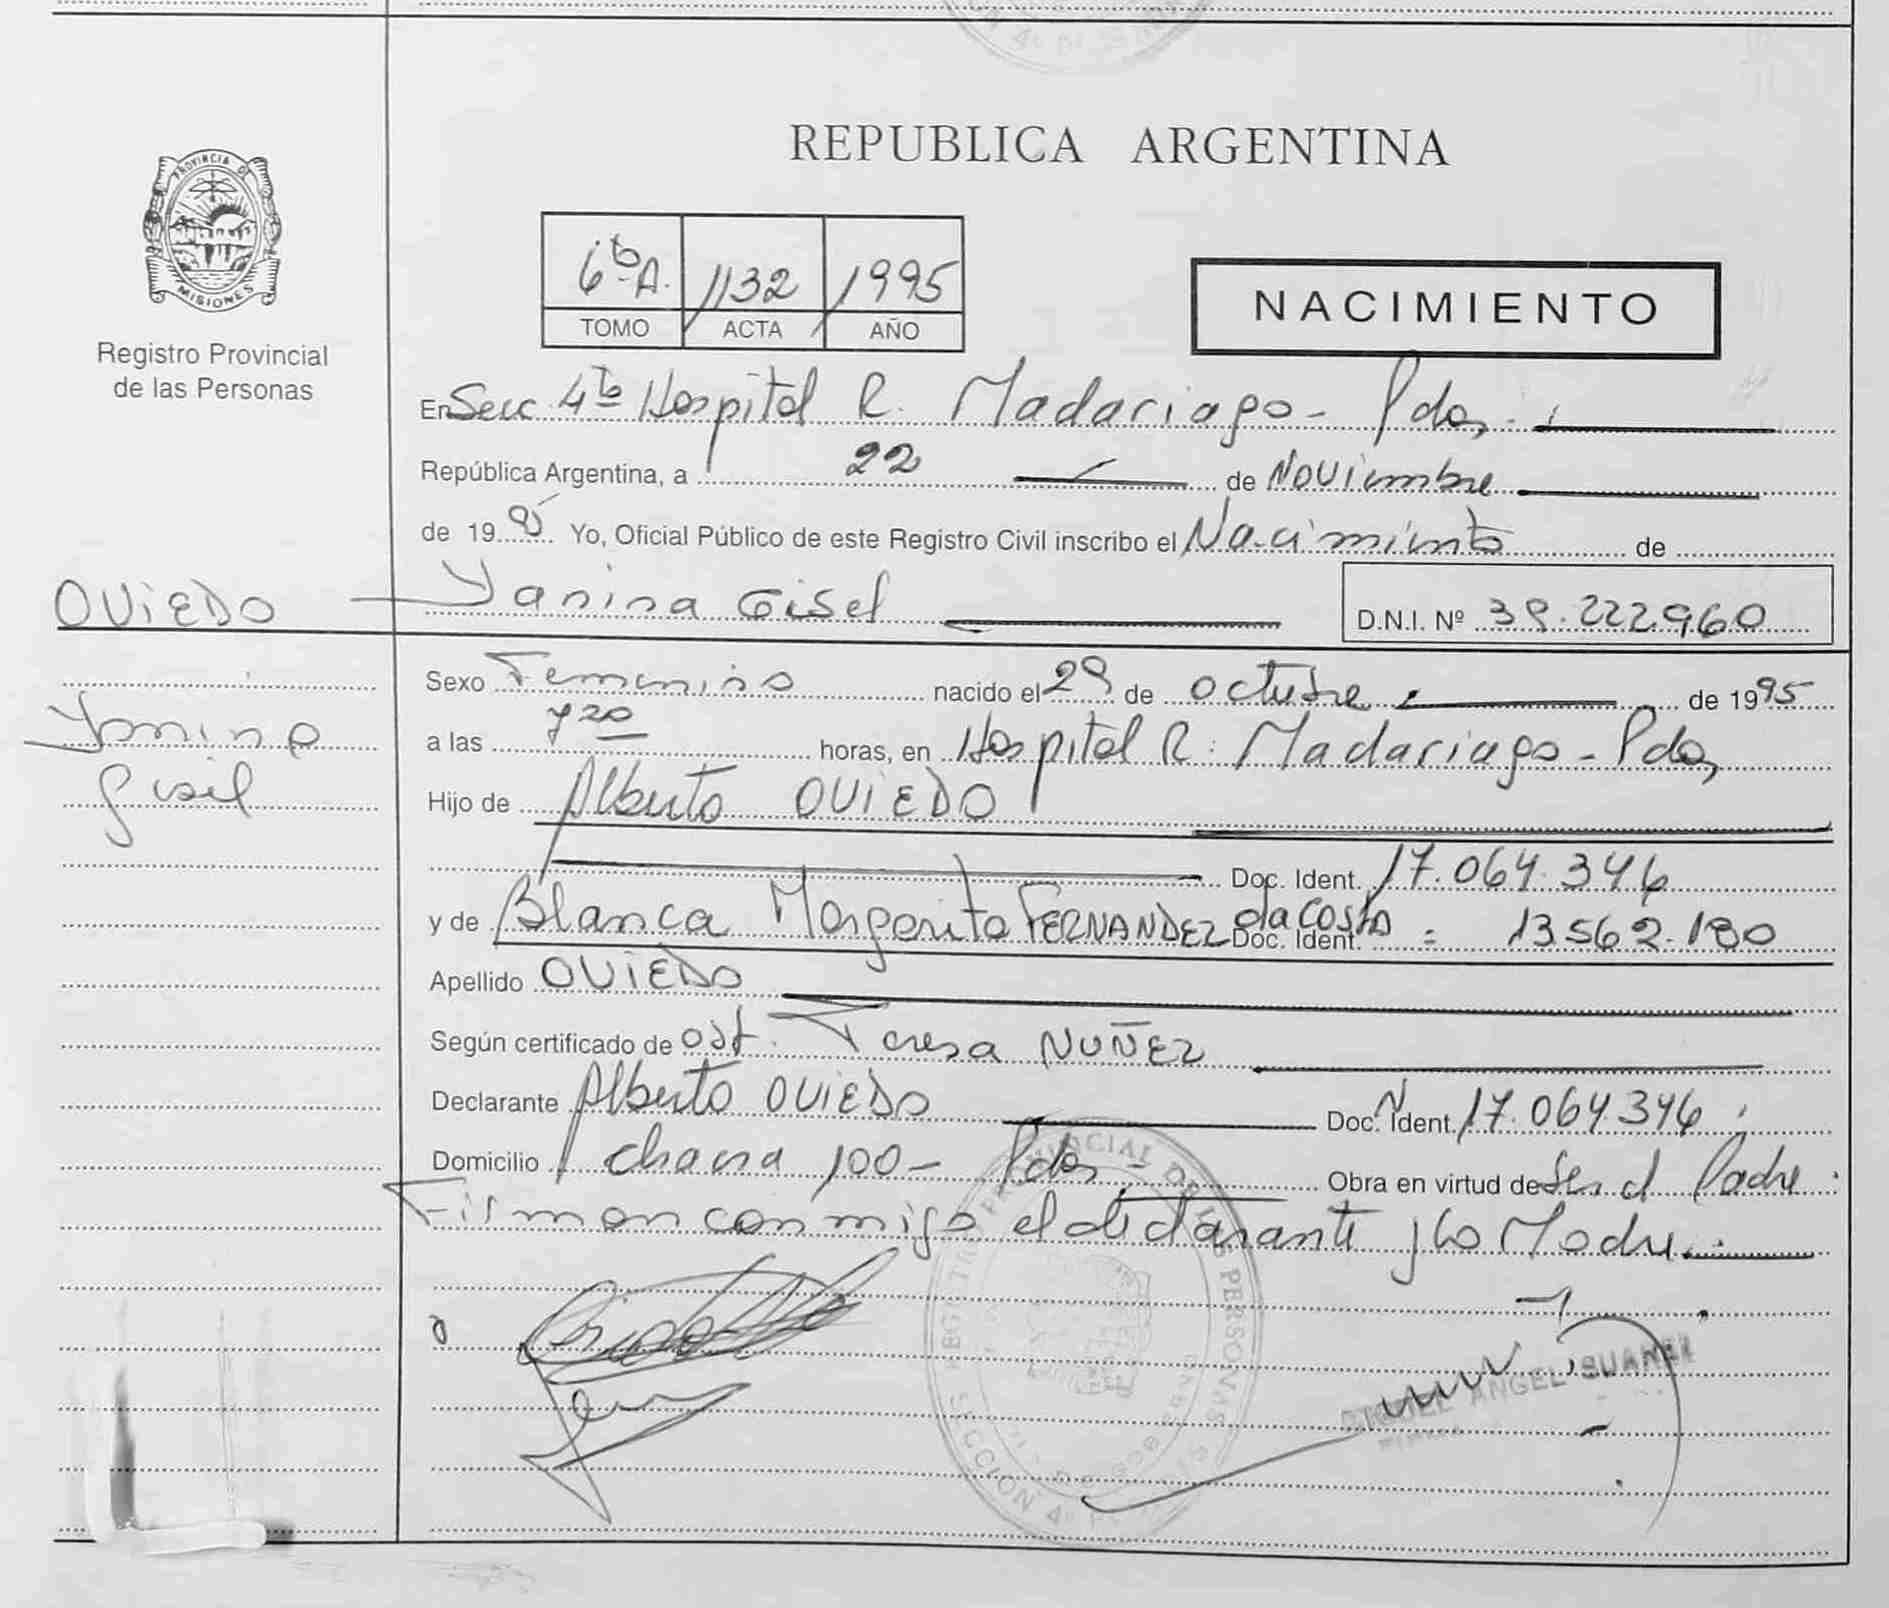 REPUBLICA ARGENTINA
PROVINCIA DE
MISIONES
Registro Provincial
de las Personas
6to A. 1132 1995
TOMO ACTA AÑO
NACIMIENTO
En Secc 4ta Hospital R. Madariaga - Pdas,
República Argentina, a 22 de Noviembre
de 1995 Yo, Oficial Público de este Registro Civil inscribo el Nacimiento de
OVIEDO
Yanina Gisel
D.N.I. Nº 39.222960
Yanina
Gisel
Sexo Femenino nacido el 29 de octubre de 1995
a las 7 20 horas, en Hospital R. Madariaga - Pdas,
Hijo de Alberto OVIEDO
Doc. Ident. 17.064.346
y de Blanca Margarita FERNANDEZ da COSTA Doc. Ident. 13.562.180
Apellido OVIEDO
Según certificado de Obst. Teresa NUÑEZ
Declarante Alberto OVIEDO Doc. Ident. 17.064.346
Domicilio chacra 100 - Pdas - Obra en virtud de Ser el Padre.
Firman conmigo el declarante y la Madre.
REGISTRO PROVINCIAL DE LAS PERSONAS
SECCION 4ª
MIGUEL ANGEL SUAREZ